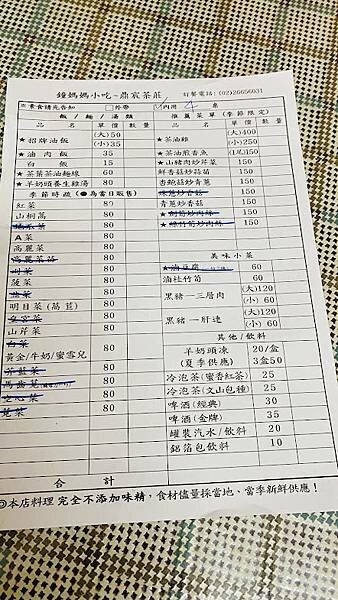 鐘媽媽小吃-鼎宸茶莊 訂餐電話:(02)26656031
※素食請先告知 □外帶 ☑內用 4 桌
飯/麵/湯類 推薦菜單(季節限定)
品名 單價 數量 品名 單價 數量
★招牌油飯 (大)50 (小)35
★滷肉飯 35
白飯 15
★茶葉茶油麵線 60
★羊奶頭養生雞湯 80
季節時蔬(●為當日販售)
紅菜 80
山桐萵 80
80
A菜 80
高麗菜 80
高麗菜苗 80
川菜 80
菠菜 80
80
明日菜(萵苣) 80
皇宮菜 80
山芹菜 80
白菜 80
黃金/牛奶/蜜雪兒 80
芥藍菜 80
馬齒莧 80
空心菜 80
莧菜 80
合計
★茶油雞 (大)400 (小)250
★茶油煎香魚 (1尾)150
★山豬肉炒芹菜 150
鮮香菇炒蒜苗 150
香鮑菇炒青蔥 150
150
青蔥炒香菇 150
★劍筍炒肉絲 150
★綠竹筍炒肉絲 150
美味小菜
★滷豆腐 60
滷桂竹筍 60
黑豬-三層肉 (大)120 (小)60
黑豬-肝連 (大)120 (小)60
其他/飲料
羊奶頭凍 20/盒
(夏季供應) 3盒50
冷泡茶(蜜香紅茶) 25
冷泡茶(文山包種) 25
啤酒(經典) 30
啤酒(金牌) 35
罐裝汽水/飲料 20
鋁箔包飲料 10
◎本店料理完全不添加味精,食材儘量採當地、當季新鮮供應!